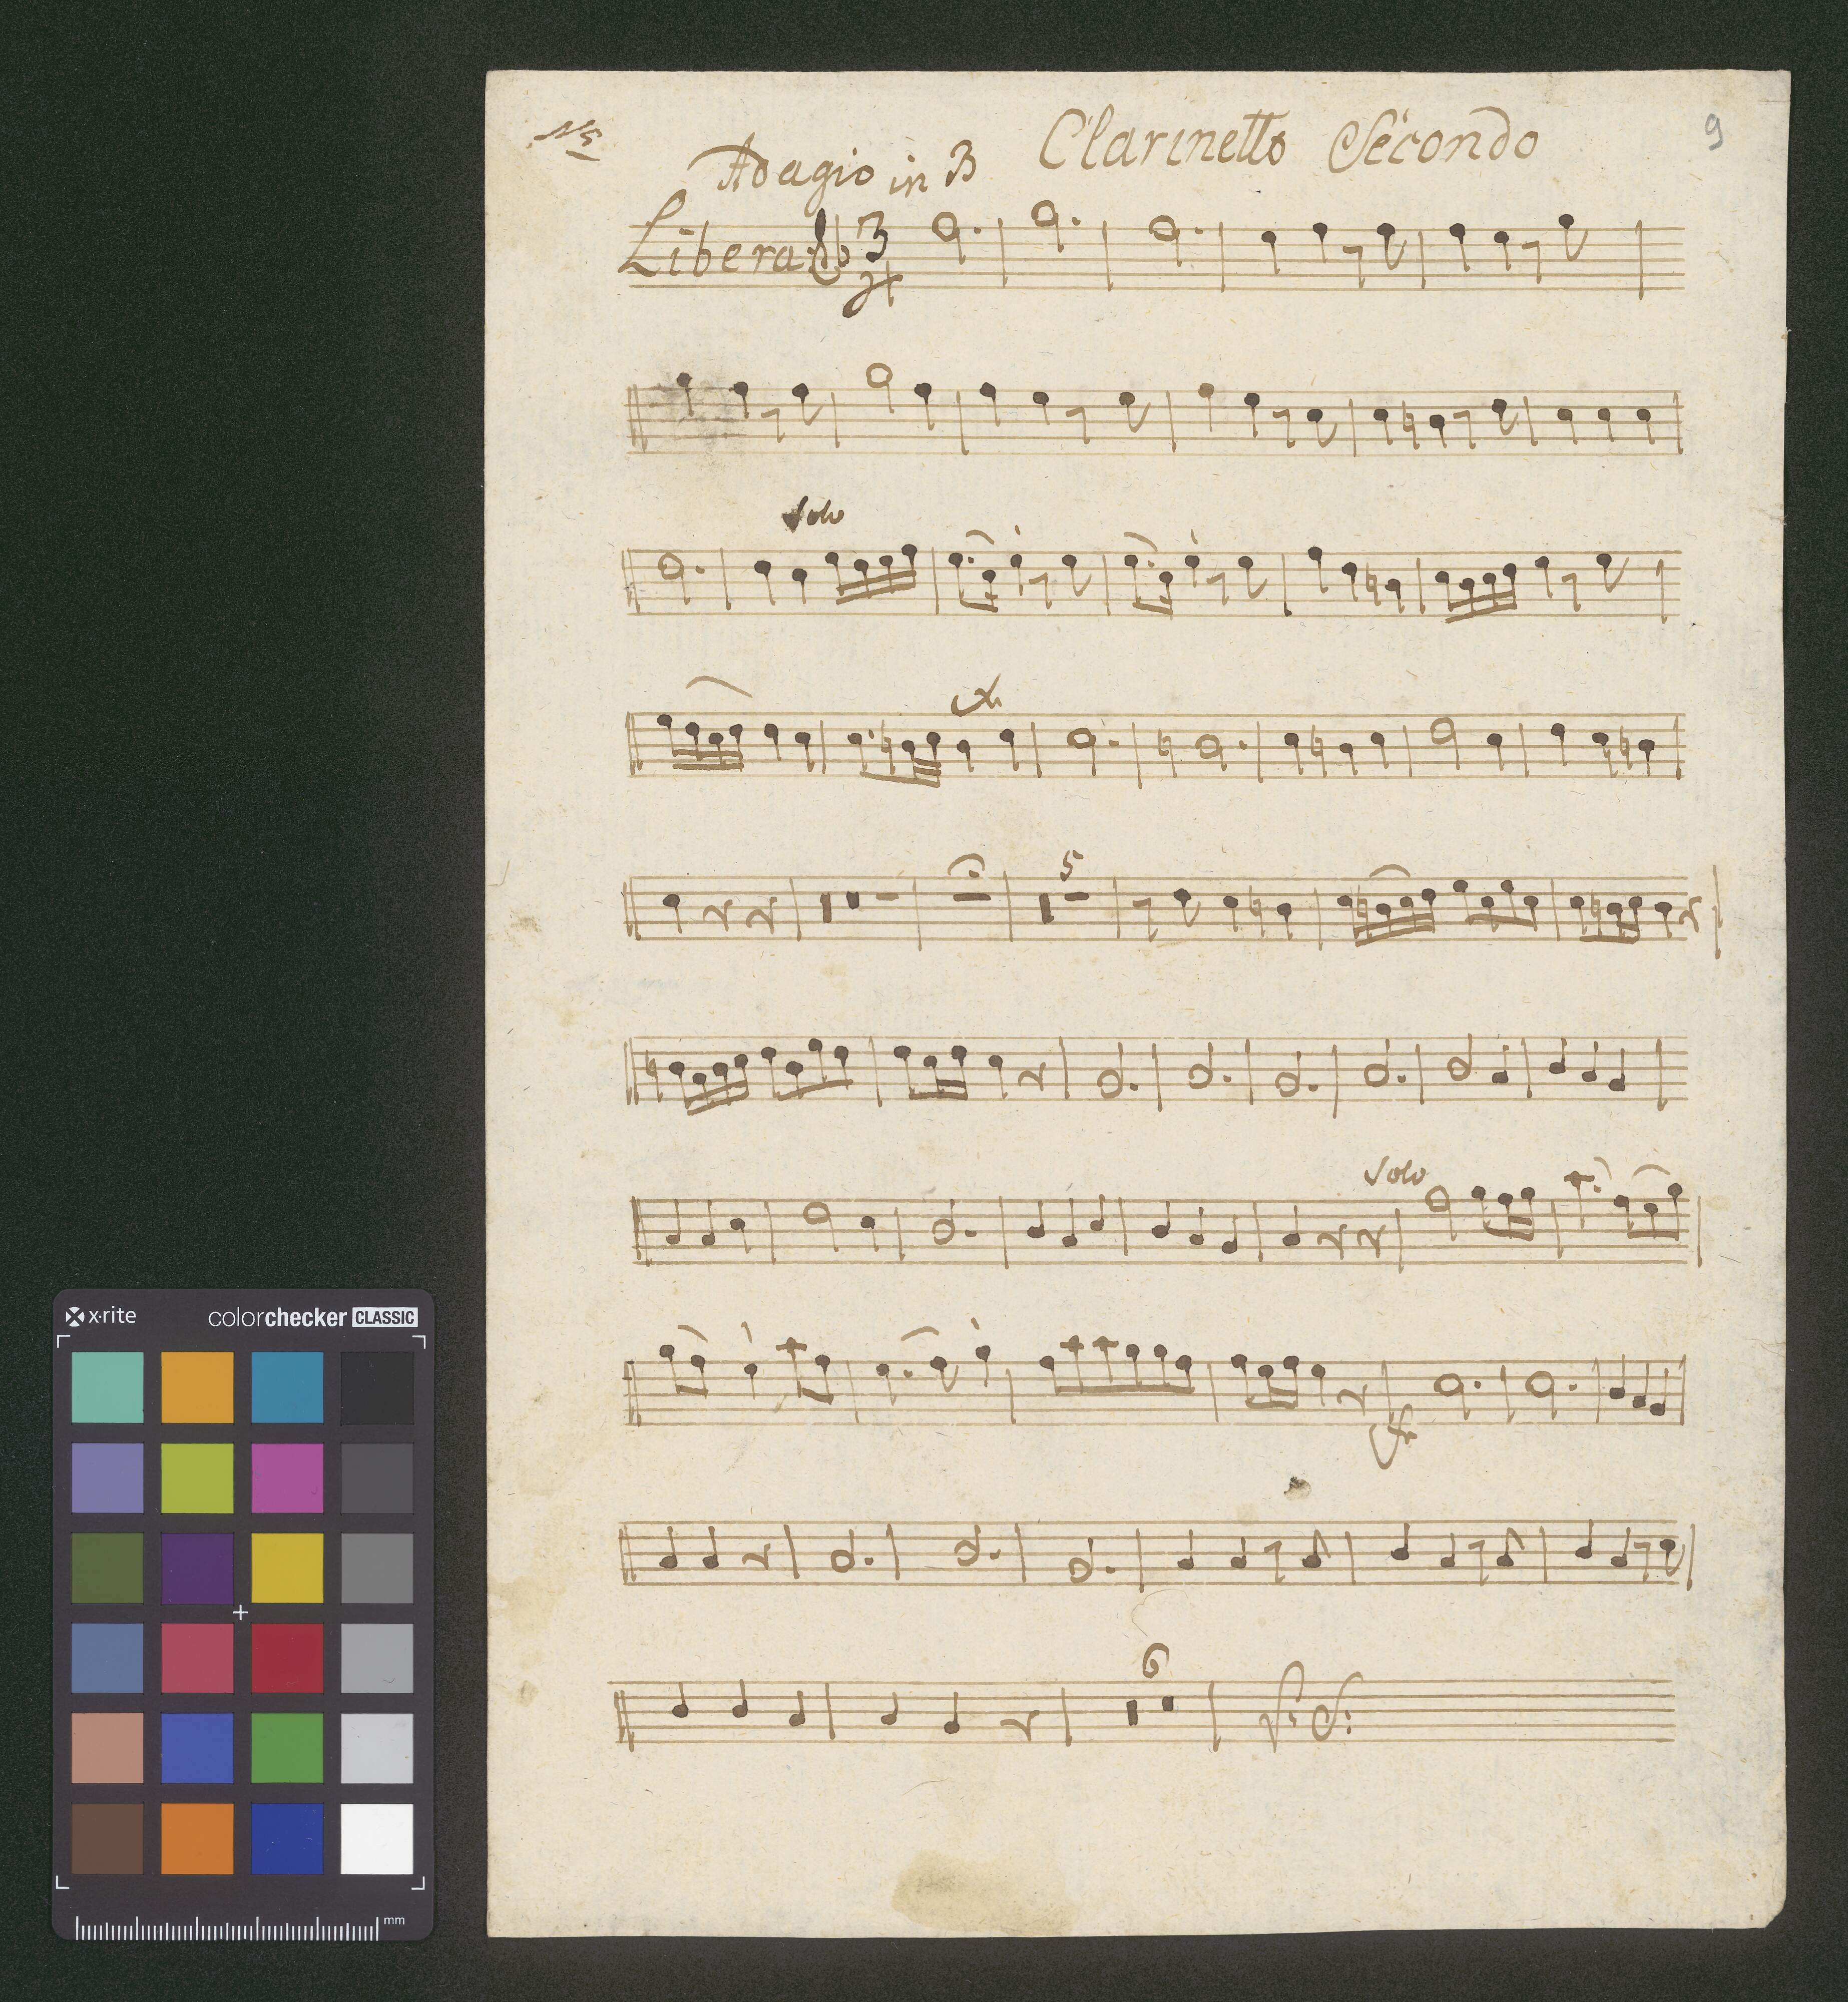 N5
Clarinetto Secondo
9
Adagio in B
Libera
3
4
Solo
5
Solo
6
x·rite
colorchecker CLASSIC
mm